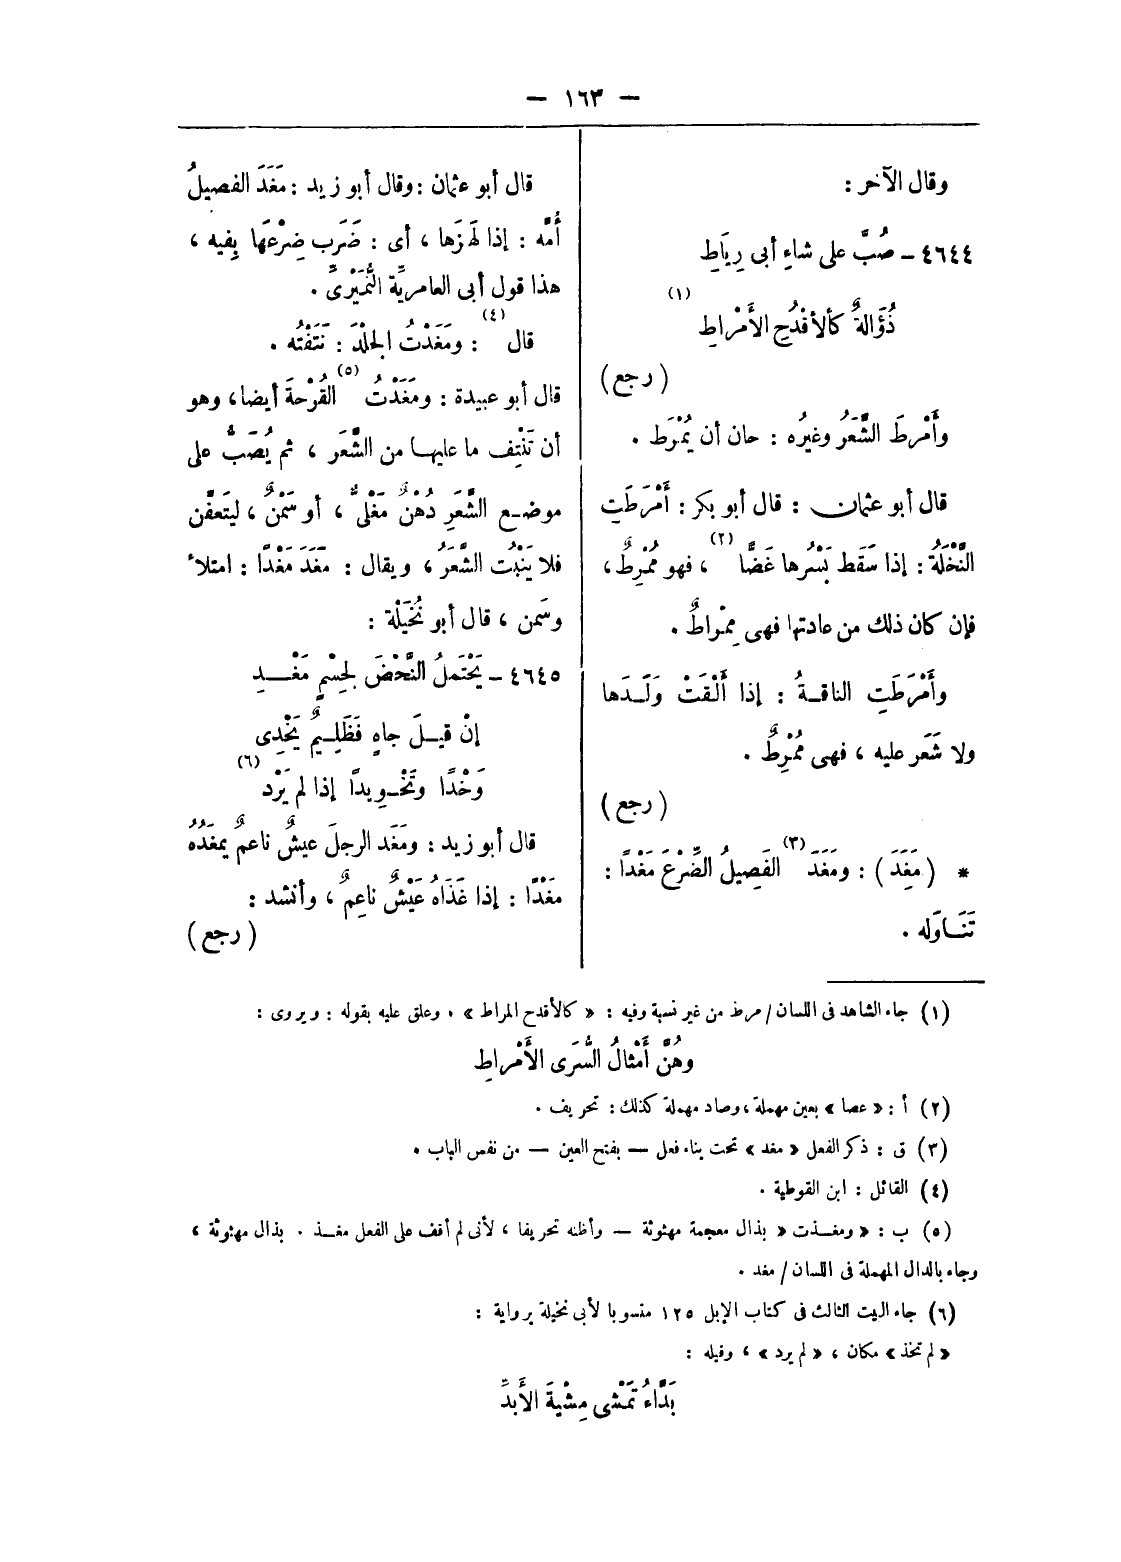 — ١٦٣ —
وقال الآخر :
٤٦٤٤ – صُبَّ على شاءِ أبى رِيَاطِ
ذُؤَالةٌ كألأقْدُحِ الأَمْراطِ (١)
( رجع )
وأَمْرطَ الشَّعَرُ وغيرُه : حان أن يُمْرَط .
قال أبو عثمان : قال أبو بكر : أَمْرَطَتِ
النَّخْلَةُ : إذا سَقَط بَسْرُها غَضًّا (٢) ، فهو مُمْرِطٌ ،
فإن كان ذلك من عادتها فهى مِمْراطٌ .
وأَمْرَطَتِ الناقةُ : إذا أَلْقَتْ وَلَدَها
ولا شَعَر عليه ، فهى مُمْرِطٌ .
( رجع )
* ( مَغَدَ ) : ومَغَدَ (٣) الفَصِيلُ الضَّرْعَ مَغْدًا :
تَنَاوَله .
قال أبو عثمان : وقال أبو زيد : مَغَدَ الفصيلُ
أُمَّه : إذا لَهَزَها ، أى : ضَرَب ضِرْعَهَا بِفيه ،
هذا قول أبى العامريَّة النُّمَيْرىِّ .
قال (٤) : ومَغَدْتُ الجلْدَ : نَتَفْتُه .
قال أبو عبيدة : ومَغَدْتُ (٥) القُرْحةَ أيضا ، وهو
أن تَنْتِف ما عليها من الشَّعَر ، ثم يُصَبُّ على
موضع الشَّعَرِ دُهْنٌ مَغْلىٌّ ، أو سَمْنٌ ، ليتَعَفَّن
فلا يَنْبُت الشَّعَرُ ، ويقال : مَغَدَ مَغْدًا : امتلأ
وسَمن ، قال أبو نُخَيْلَة :
٤٦٤٥ – يَحْتَملُ النَّحْضَ لِجسْمٍ مَغْدِ
إنْ قيلَ جاهٍ فَظَلِيمٌ يَخْدِى
وَخْدًا وتَخْويدًا إذا لم يَرْد (٦)
قال أبو زيد : ومَغَد الرجلَ عيشٌ ناعمٌ يمغَدُه
مَغْدًا : إذا غَذَاهُ عَيْشٌ ناعِمٌ ، وأنشد :
( رجع )
(١) جاء الشاهد فى اللسان / مرط من غير نسبة وفيه : « كالأقدح المراط » . وعلق عليه بقوله : ويروى :
وهُنَّ أَمْثالُ السُّرَى الأَمْراطِ
(٢) أ : « عصا » بعين مهملة ، وصاد مهملة كذلك : تحريف .
(٣) ق : ذكر الفعل « مغد » تحت بناء فعل — بفتح العين — من نفس الباب .
(٤) القائل : ابن القوطية .
(٥) ب : « ومغذت » بذال معجمة مهثوثة — وأظنه تحريفا ، لأنى لم أقف على الفعل مغذ . بذال مهثوثة ،
وجاء بالدال المهملة فى اللسان / مغد .
(٦) جاء البيت الثالث فى كتاب الإبل ١٢٥ منسوبا لأبى نخيلة برواية :
« لم تخذ » مكان ، « لم يرد » ، وقبله :
بَدَّاءُ تَمْشى مِشْيةَ الأَبدِّ